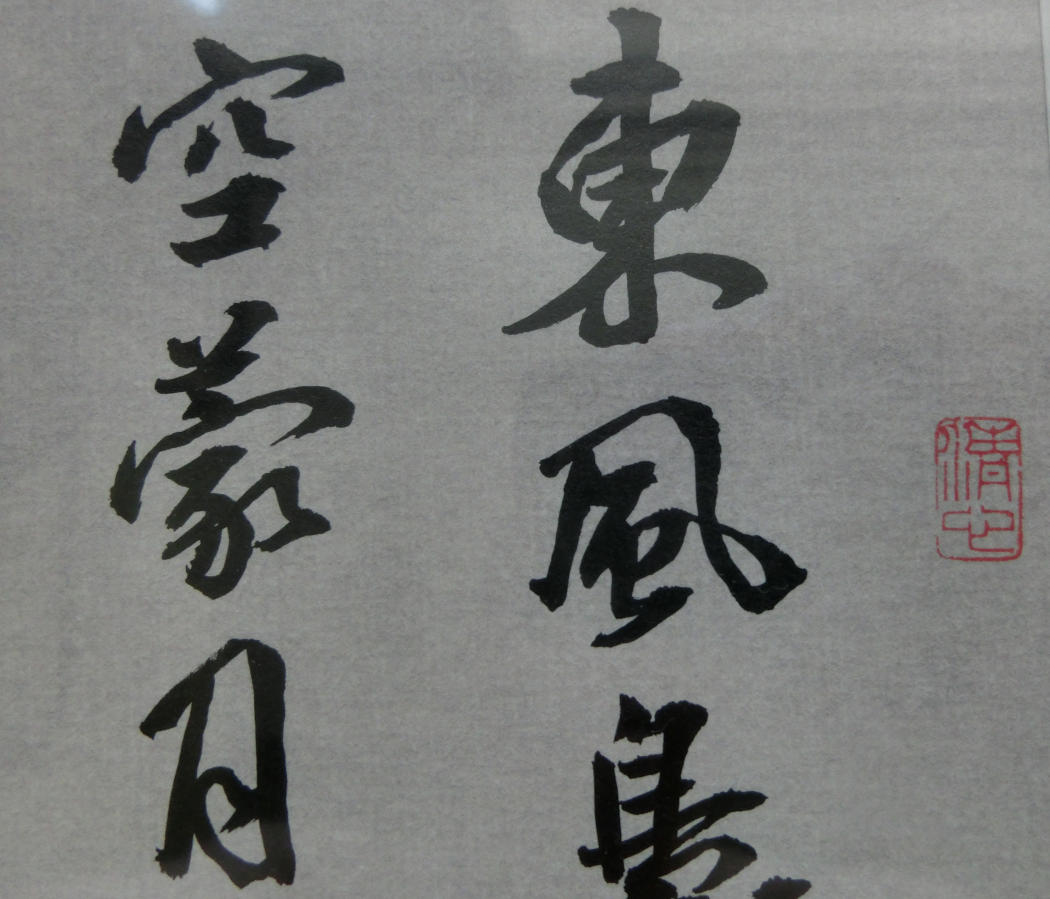 東風裊
空蒙月